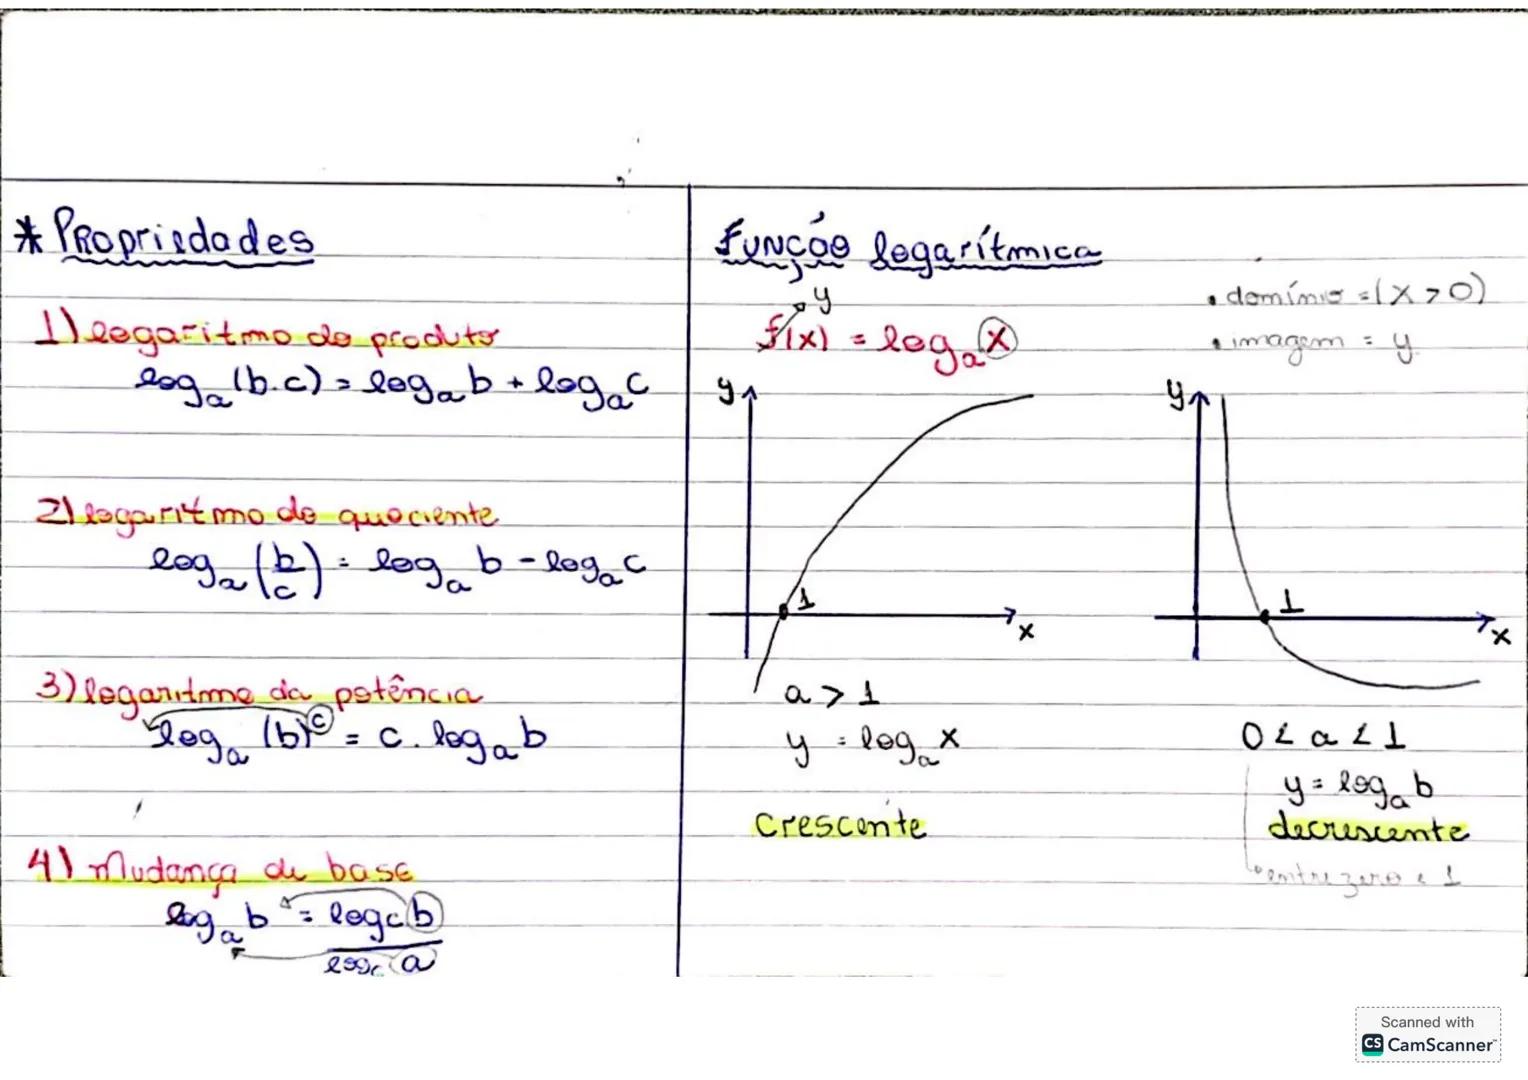 * Propriedades
1) logaritmo do produto
logₐ (b.c) = logₐ b + logₐ c
2) logaritmo do quociente
logₐ (b/c) = logₐ b - logₐ c
3) logaritmo da potência
logₐ (b)ᶜ = c . logₐ b
4) Mudança de base
logₐ b = logc b
logc a
Função logarítmica
y
f(x) = logₐ x
• domínio = (x > 0)
• imagem = y
y
1
x
a > 1
y = logₐ x
crescente
y
1
x
0 < a < 1
y = logₐ b
decrescente
entre zero e 1
Scanned with
CS CamScanner